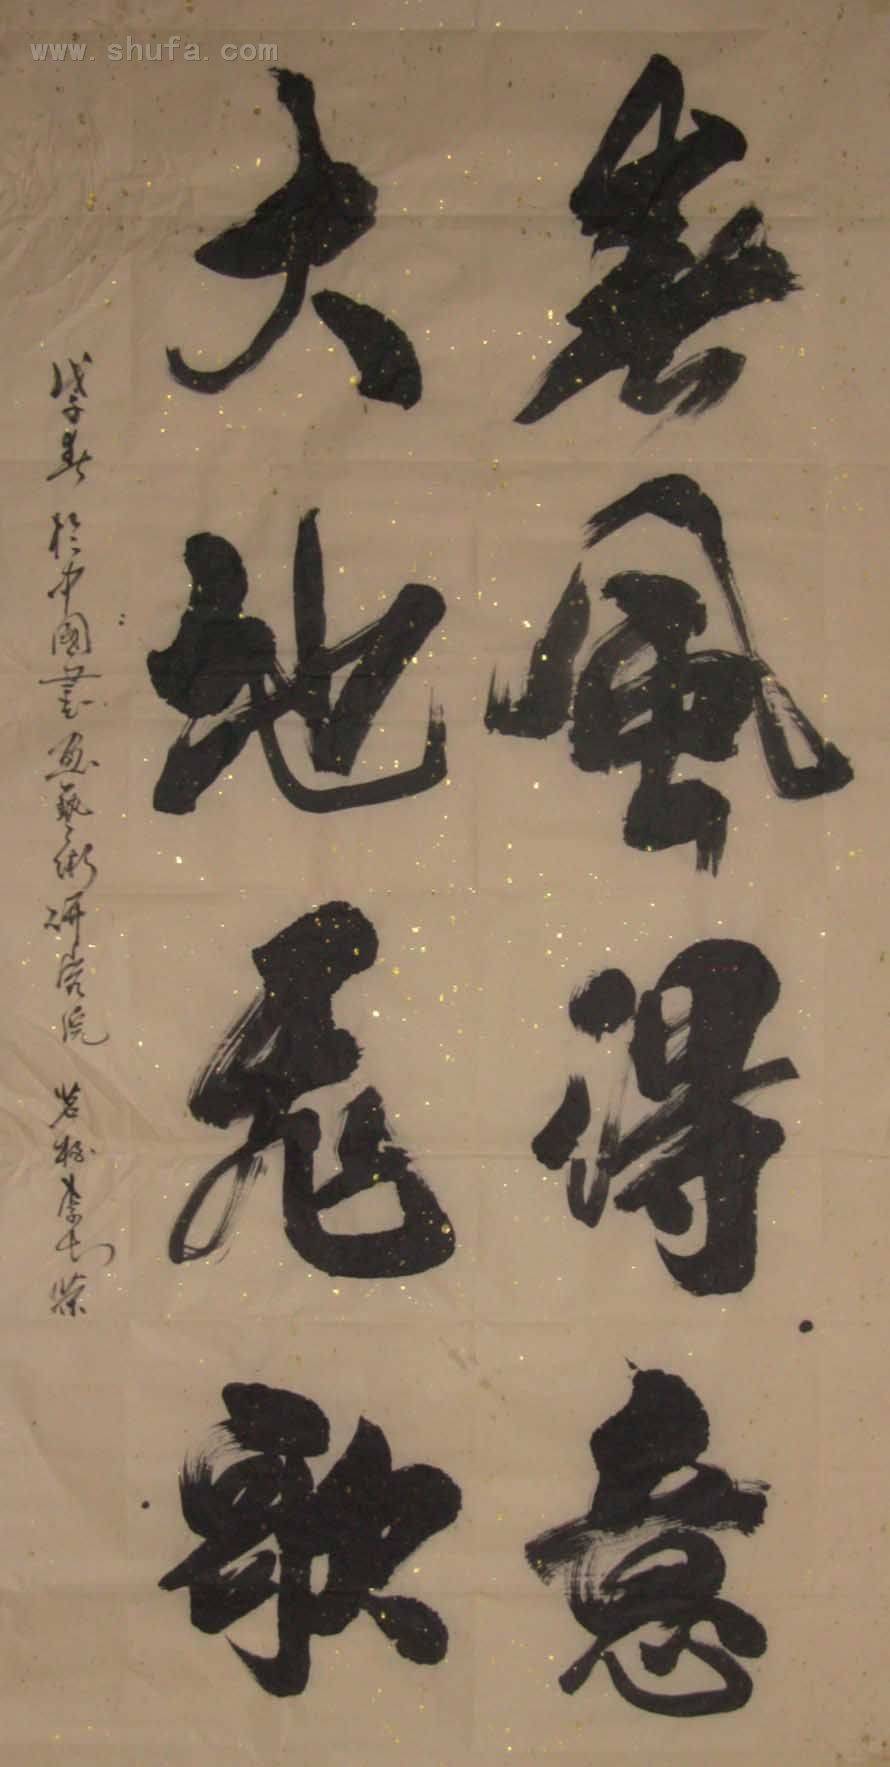 www.shufa.com
春風得意
大地飛歌
戊子春 於中國書畫藝術研究院 李長榮